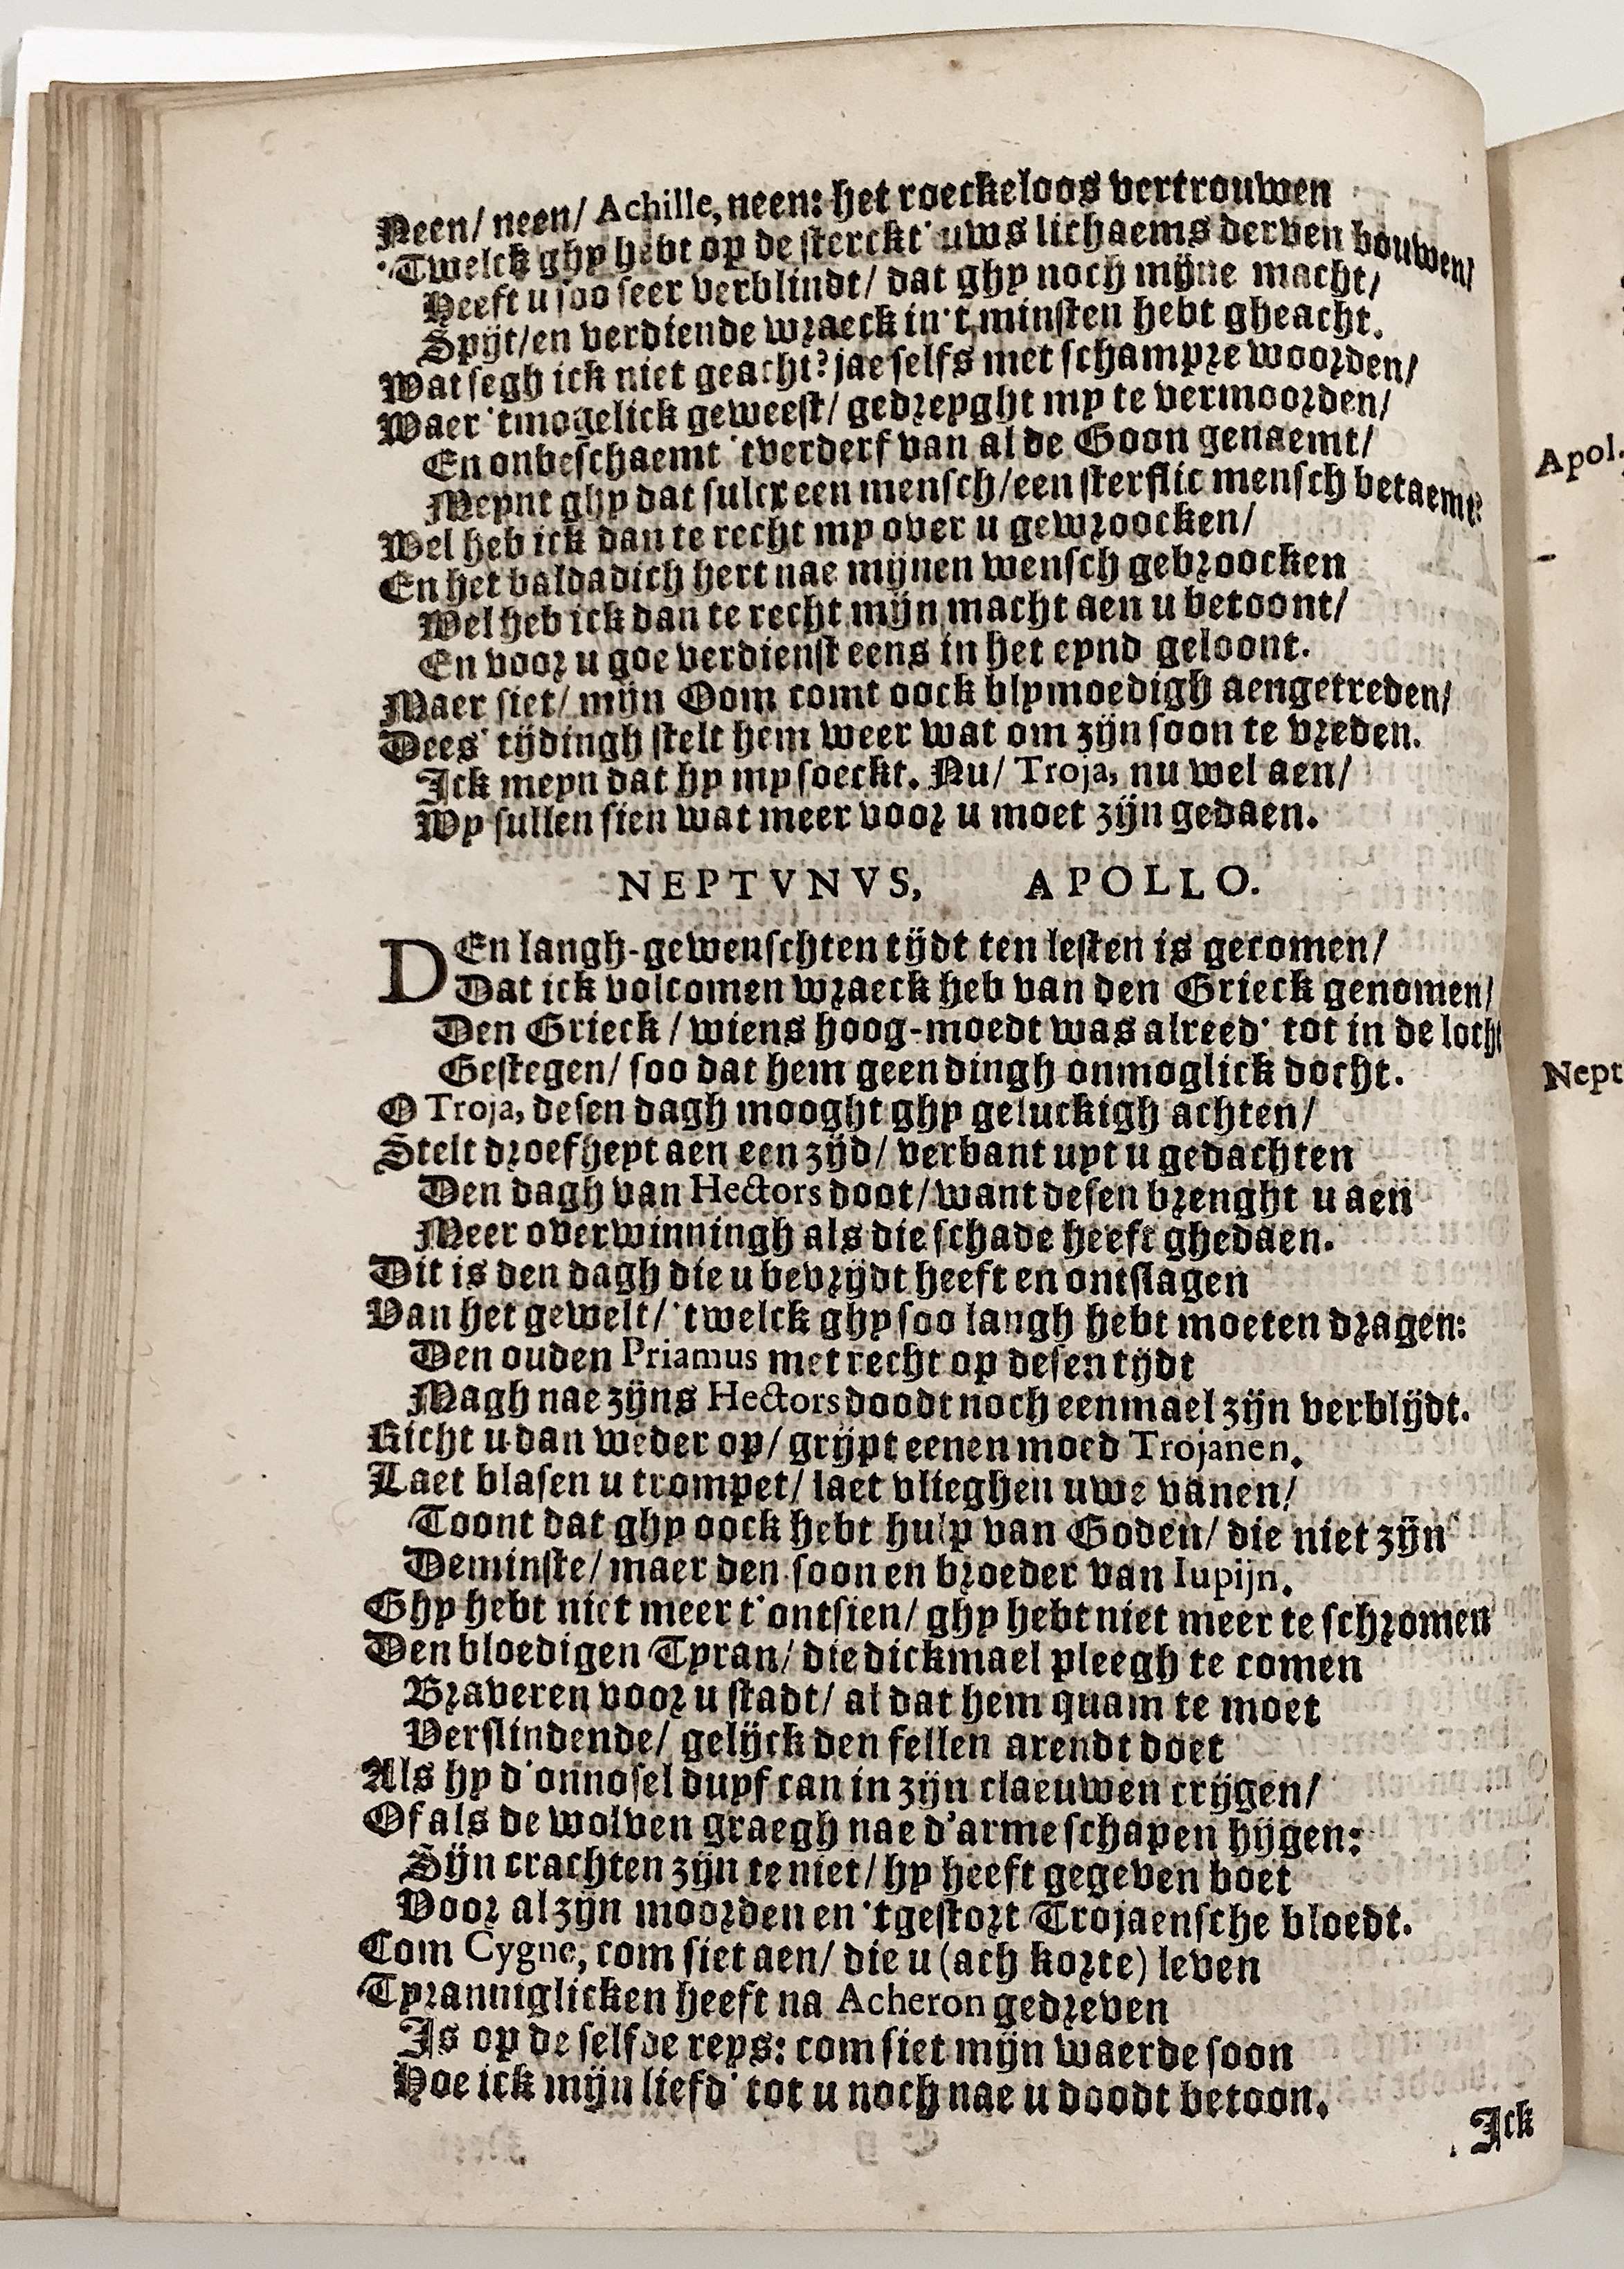 Neen/ neen/ Achille, neen: het roeckeloos vertrouwen
'Twelck ghy hebt op de sterckt' uws lichaems derven bouwen/
Heeft u soo seer verblindt/ dat ghy noch mijne macht/
Spijt/ en verdiende wraeck in 't minsten hebt gheacht.
Wat segh ick niet geacht? jae selfs met schampre woorden/
Waer 't mogelick geweest/ gedreyght my te vermoorden/
En onbeschaemt 't verderf van al de Goon genaemt/
Meynt ghy dat sulcx een mensch/ een sterflic mensch betaemt?
Wel heb ick dan te recht my over u gewroocken/
En het baldadich hert nae mijnen wensch gebroocken
Wel heb ick dan te recht mijn macht aen u betoont/
En voor u goe verdienst eens in het eynd geloont.
Maer siet/ mijn Oom comt oock blymoedigh aengetreden/
Dees' tijdingh stelt hem weer wat om zijn soon te vreden.
Ick meyn dat hy my soeckt. Nu/ Troja, nu wel aen/
Wy sullen sien wat meer voor u moet zijn gedaen.
NEPTVNVS, APOLLO.
DEn langh-gewenschten tijdt ten lesten is gecomen/
Dat ick volcomen wraeck heb van den Grieck genomen/
Den Grieck/ wiens hoog-moedt was alreed' tot in de locht
Gestegen/ soo dat hem geen dingh onmoglick docht.
O Troja, desen dagh mooght ghy geluckigh achten/
Stelt droefheyt aen een zijd/ verbant uyt u gedachten
Den dagh van Hectors doot/ want desen brenght u aen
Meer overwinningh als die schade heeft ghedaen.
Dit is den dagh die u bevrijdt heeft en ontslagen
Van het gewelt/ 'twelck ghy soo langh hebt moeten dragen:
Den ouden Priamus met recht op desen tijdt
Magh nae zijns Hectors doodt noch eenmael zijn verblijdt.
Richt u dan weder op/ grijpt eenen moed Trojanen.
Laet blasen u trompet/ laet vlieghen uwe vanen/
Toont dat ghy oock hebt hulp van Goden/ die niet zijn
De minste/ maer den soon en broeder van Iupijn.
Ghy hebt niet meer t'ontsien/ ghy hebt niet meer te schromen
Den bloedigen Tyran/ die dickmael pleegh te comen
Braveren voor u stadt/ al dat hem quam te moet
Verslindende/ gelijck den fellen arendt doet
Als hy d'onnosel duyf can in zijn claeuwen crijgen/
Of als de wolven graegh nae d'arme schapen hijgen:
Sijn crachten zijn te niet/ hy heeft gegeven boet
Voor al zijn moorden en 't gestort Trojaensche bloedt.
Com Cygne, com siet aen/ die u (ach korte) leven
Tyranniglicken heeft na Acheron gedreven
Is op de selfde reys: com siet mijn waerde soon
Hoe ick mijn liefd' tot u noch nae u doodt betoon.
Ick
Apol.
Nept